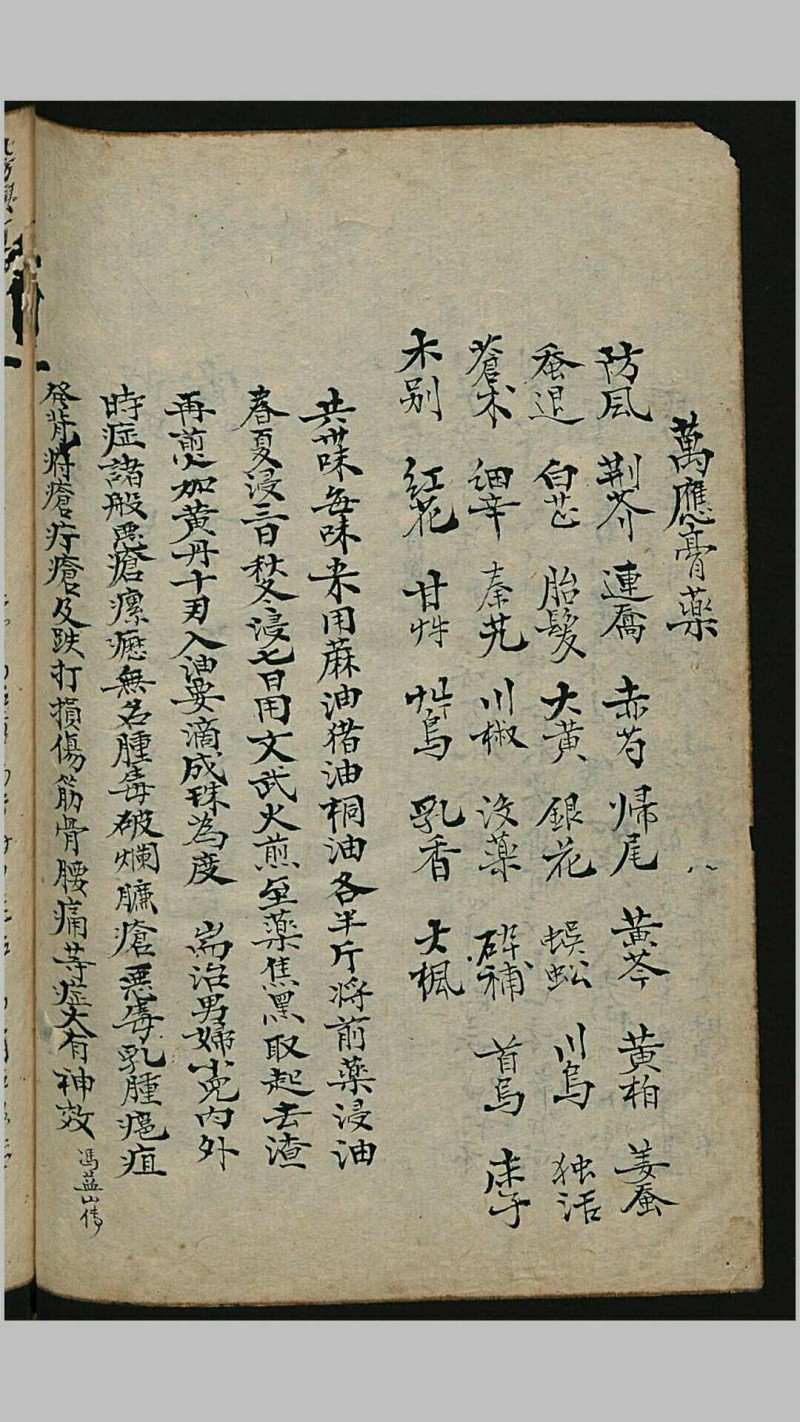 萬應膏藥
防風 荆芥 連喬 赤芍 帰尾 黄芩 黄柏 姜蚕
蚕退 白芷 胎髮 大黄 銀花 蜈蚣 川烏 独活
蒼术 細辛 秦艽 川椒 没藥 碎補 首烏
木别 紅花 甘艸 艸烏 乳香 大楓
共卅味每味 用蔴油猪油桐油各半斤将前藥浸油
春夏浸三日秋冬浸七日用文武火煎至藥焦黑取起去渣
再煎加黄丹十刄入油要滴成珠為度 耑治男婦小児内外
時症諸般悪瘡瘰癧無名腫毒破爛臁瘡悪毒乳腫 疽
發背痔瘡疔瘡及跌打損傷筋骨腰痛等症大有神效 馮益山传